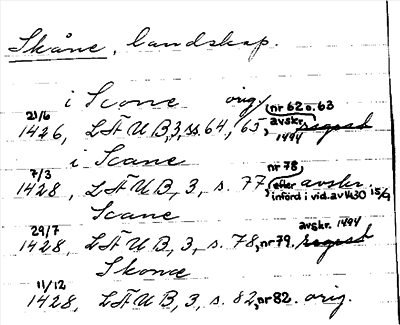 Skåne, landskap.
i Scone orig. (nr 62 o. 63
21/6 1426, LÄUB, 3, ss. 64, 65, avskr. 1494
i Scane nr 78,
7/3 1428, LÄUB, 3, s. 77, (efter avskr. införd i vid. av 1430 15/9
Scane
29/7 1428, LÄUB, 3, s. 78, nr 79. avskr. 1494
Skonæ
11/12 1428, LÄUB, 3, s. 82, nr 82. orig.